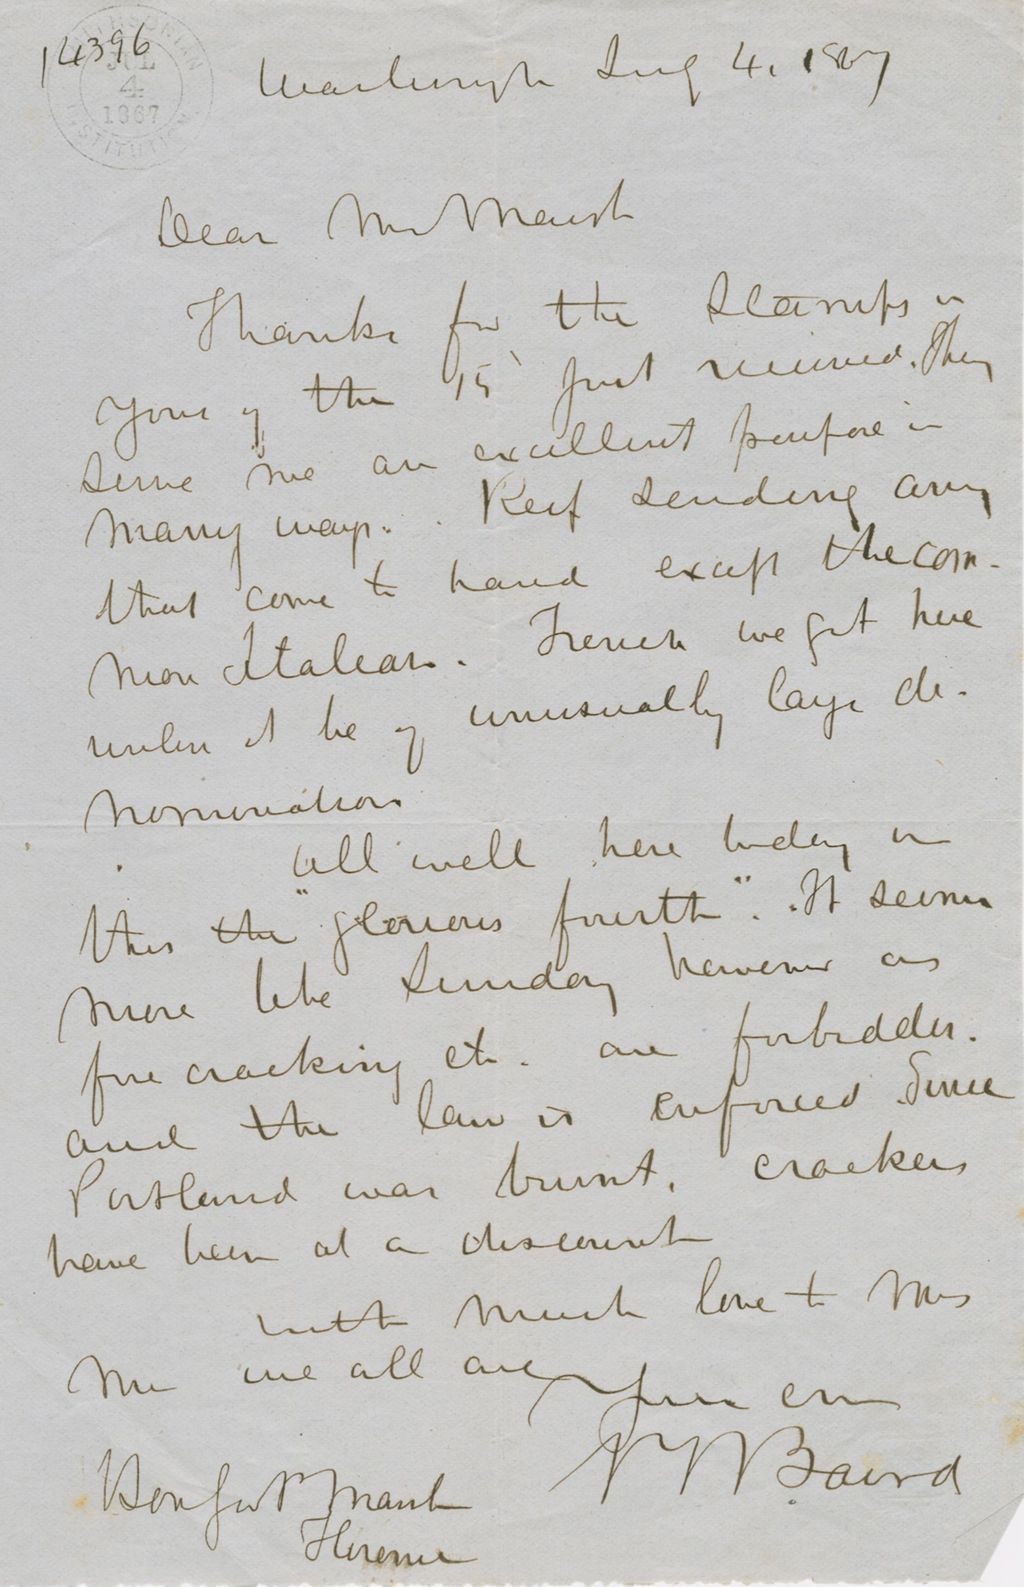 14396
SMITHSONIAN
JUL
4
1867
INSTITUTION
Washington July 4, 1867
Dear Mr Marsh
Thanks for the stamps in
yours of the 15 just received. They
serve me an excellent purpose in
many ways. Keep sending any
that come to hand except the com-
mon Italian. French we get here
unless it be of unusually large de-
nomination
All well here today on
this the "glorious fourth". It seems
more like Sunday however as
fire cracking etc. are forbidden.
and the law is enforced. Since
Portland was burnt, crackers
have been at a discount
with much love to Mrs
M we all are
Yours ever
S F Baird
Hon Geo P Marsh
Florence